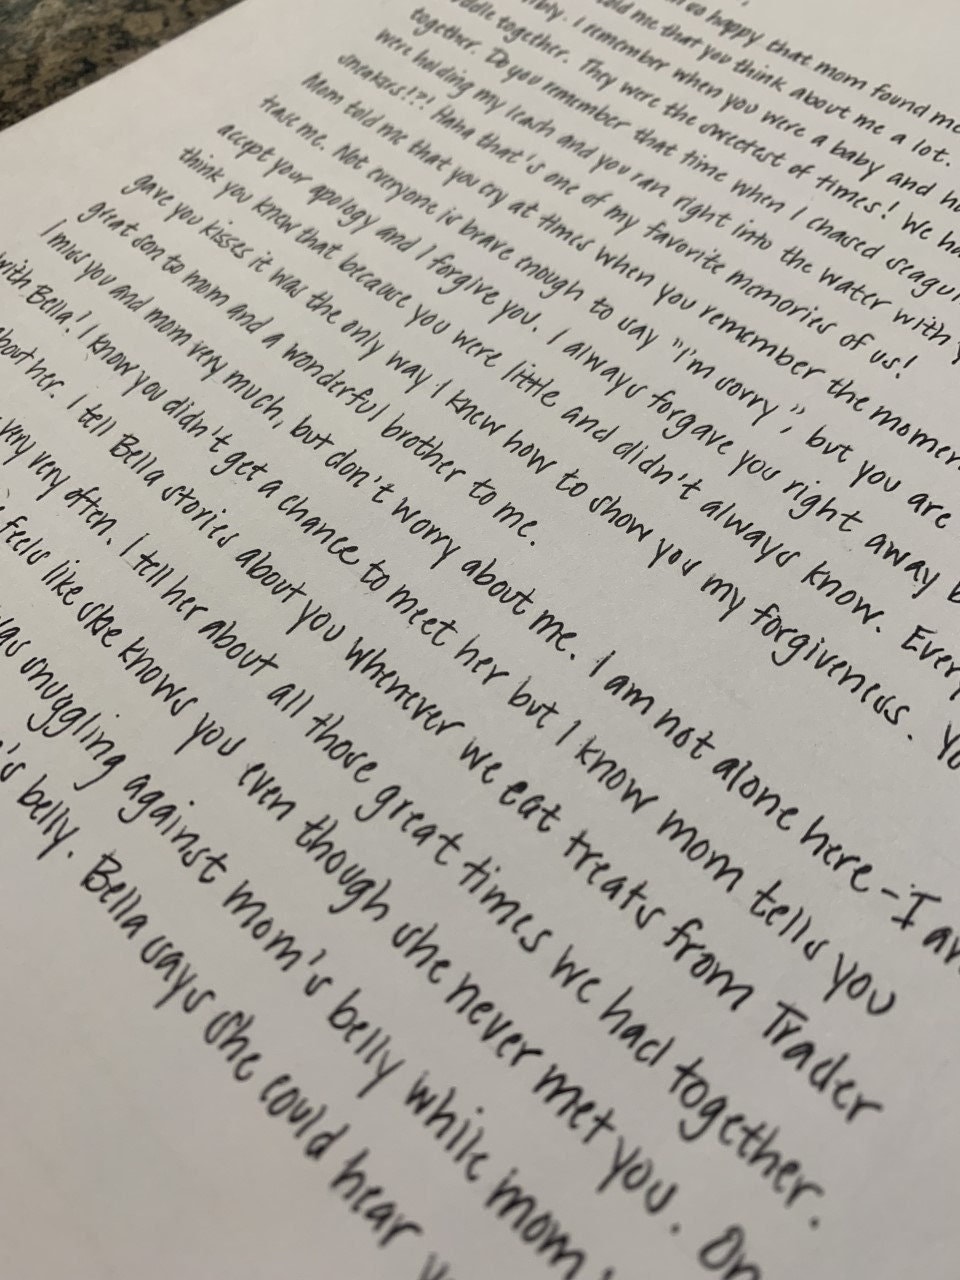 so happy that mom found me
told me that you think about me a lot.
I remember when you were a baby and
together. They were the sweetest of times! We
together. Do you remember that time when I chased
were holding my leash and you ran right into the water with
sneakers!?! Haha that's one of my favorite memories of us!
Mom told me that you cry at times when you remember the
tease me. Not everyone is brave enough to say "I'm sorry", but you are
accept your apology and I forgive you. I always forgave you right away
think you knew that because you were little and didn't always know.
gave you kisses it was the only way I knew how to show you my forgiveness.
great son to mom and a wonderful brother to me.
I miss you and mom very much, but don't worry about me. I am not alone here - I
with Bella! I know you didn't get a chance to meet her but I know mom tells you
about her. I tell Bella stories about you whenever we eat treats from Trader
very very often. I tell her about all those great times we had together.
feels like she knows you even though she never met you.
was snuggling against mom's belly while mom
belly. Bella says she could hear